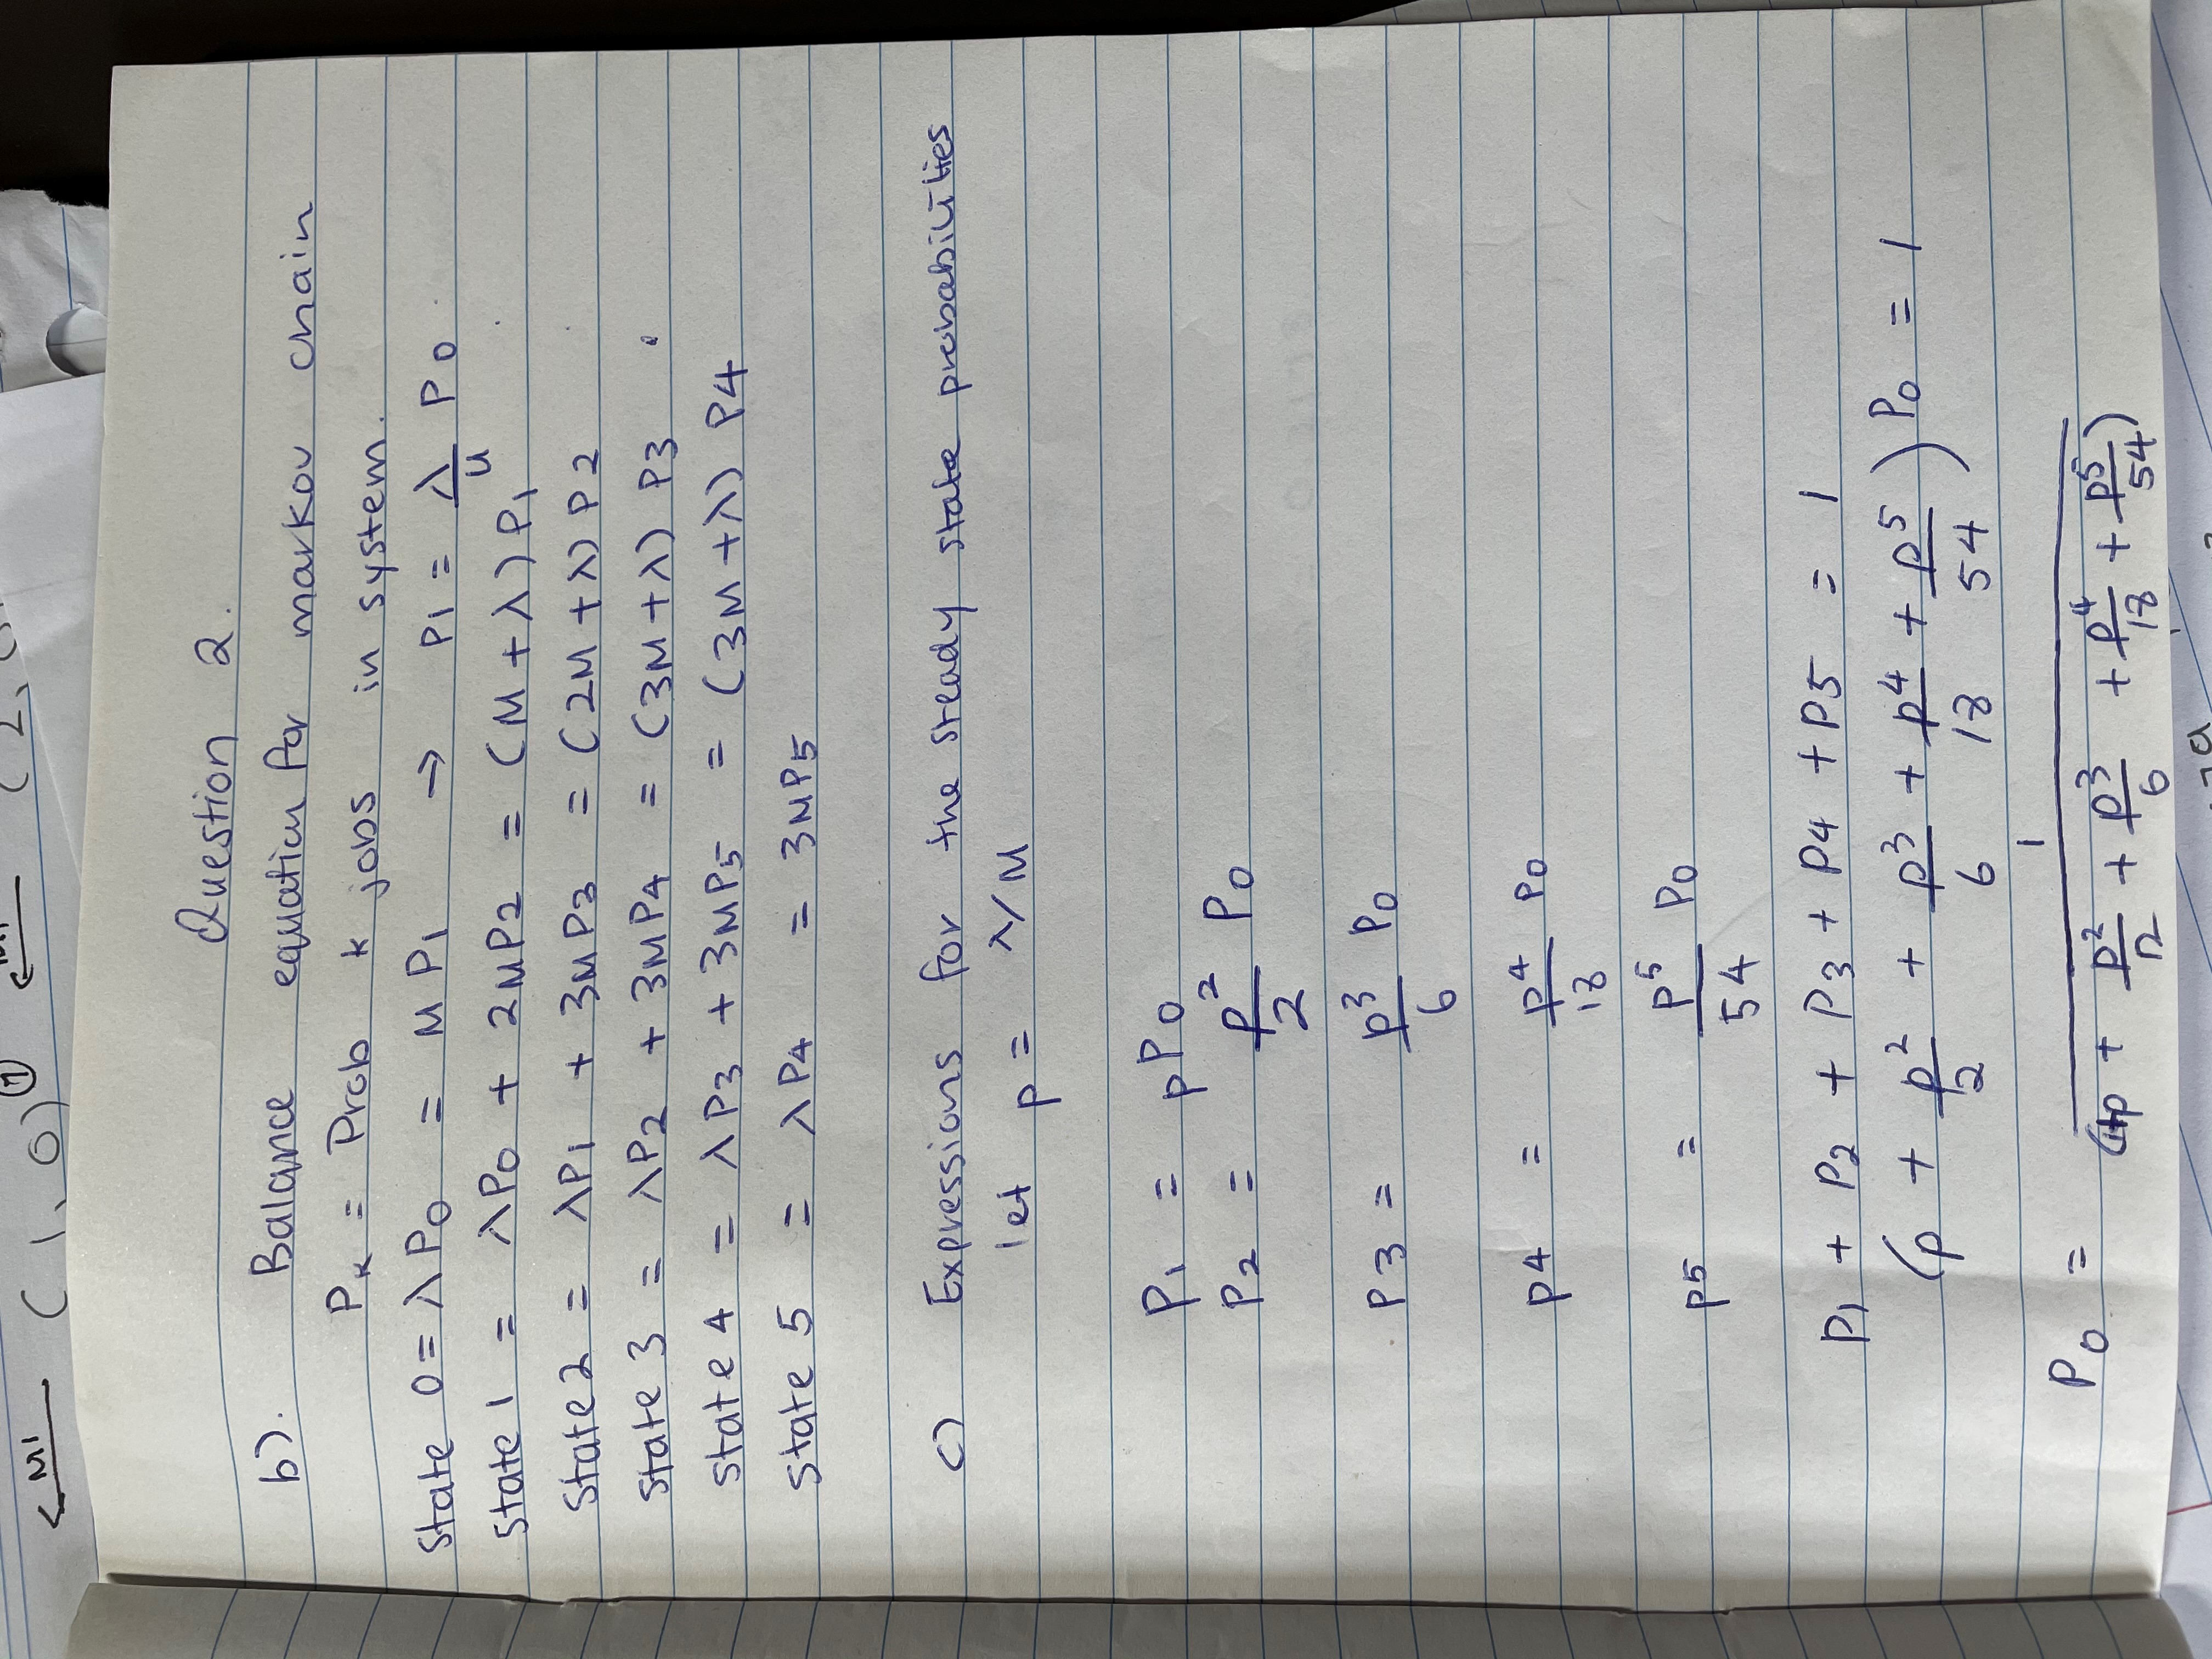 Question 2.
b). Balance equation for markov chain
Pₖ = Prob k jobs in system.
State 0 = λP₀ = MP₁ → P₁ = λ/u P₀
State 1 = λP₀ + 2MP₂ = (M + λ) P₁
State 2 = λP₁ + 3MP₃ = (2M + λ) P₂
State 3 = λP₂ + 3MP₄ = (3M + λ) P₃
State 4 = λP₃ + 3MP₅ = (3M + λ) P₄
State 5 = λP₄ = 3MP₅
c) Expressions for the steady state probabilities
let p = λ/M
P₁ = pP₀
P₂ = p²/2 P₀
P₃ = p³/6 P₀
P₄ = p⁴/18 P₀
P₅ = p⁵/54 P₀
P₁ + P₂ + P₃ + P₄ + P₅ = 1
(p + p²/2 + p³/6 + p⁴/18 + p⁵/54) P₀ = 1
P₀ = 1/(1+p + p²/2 + p³/6 + p⁴/18 + p⁵/54)